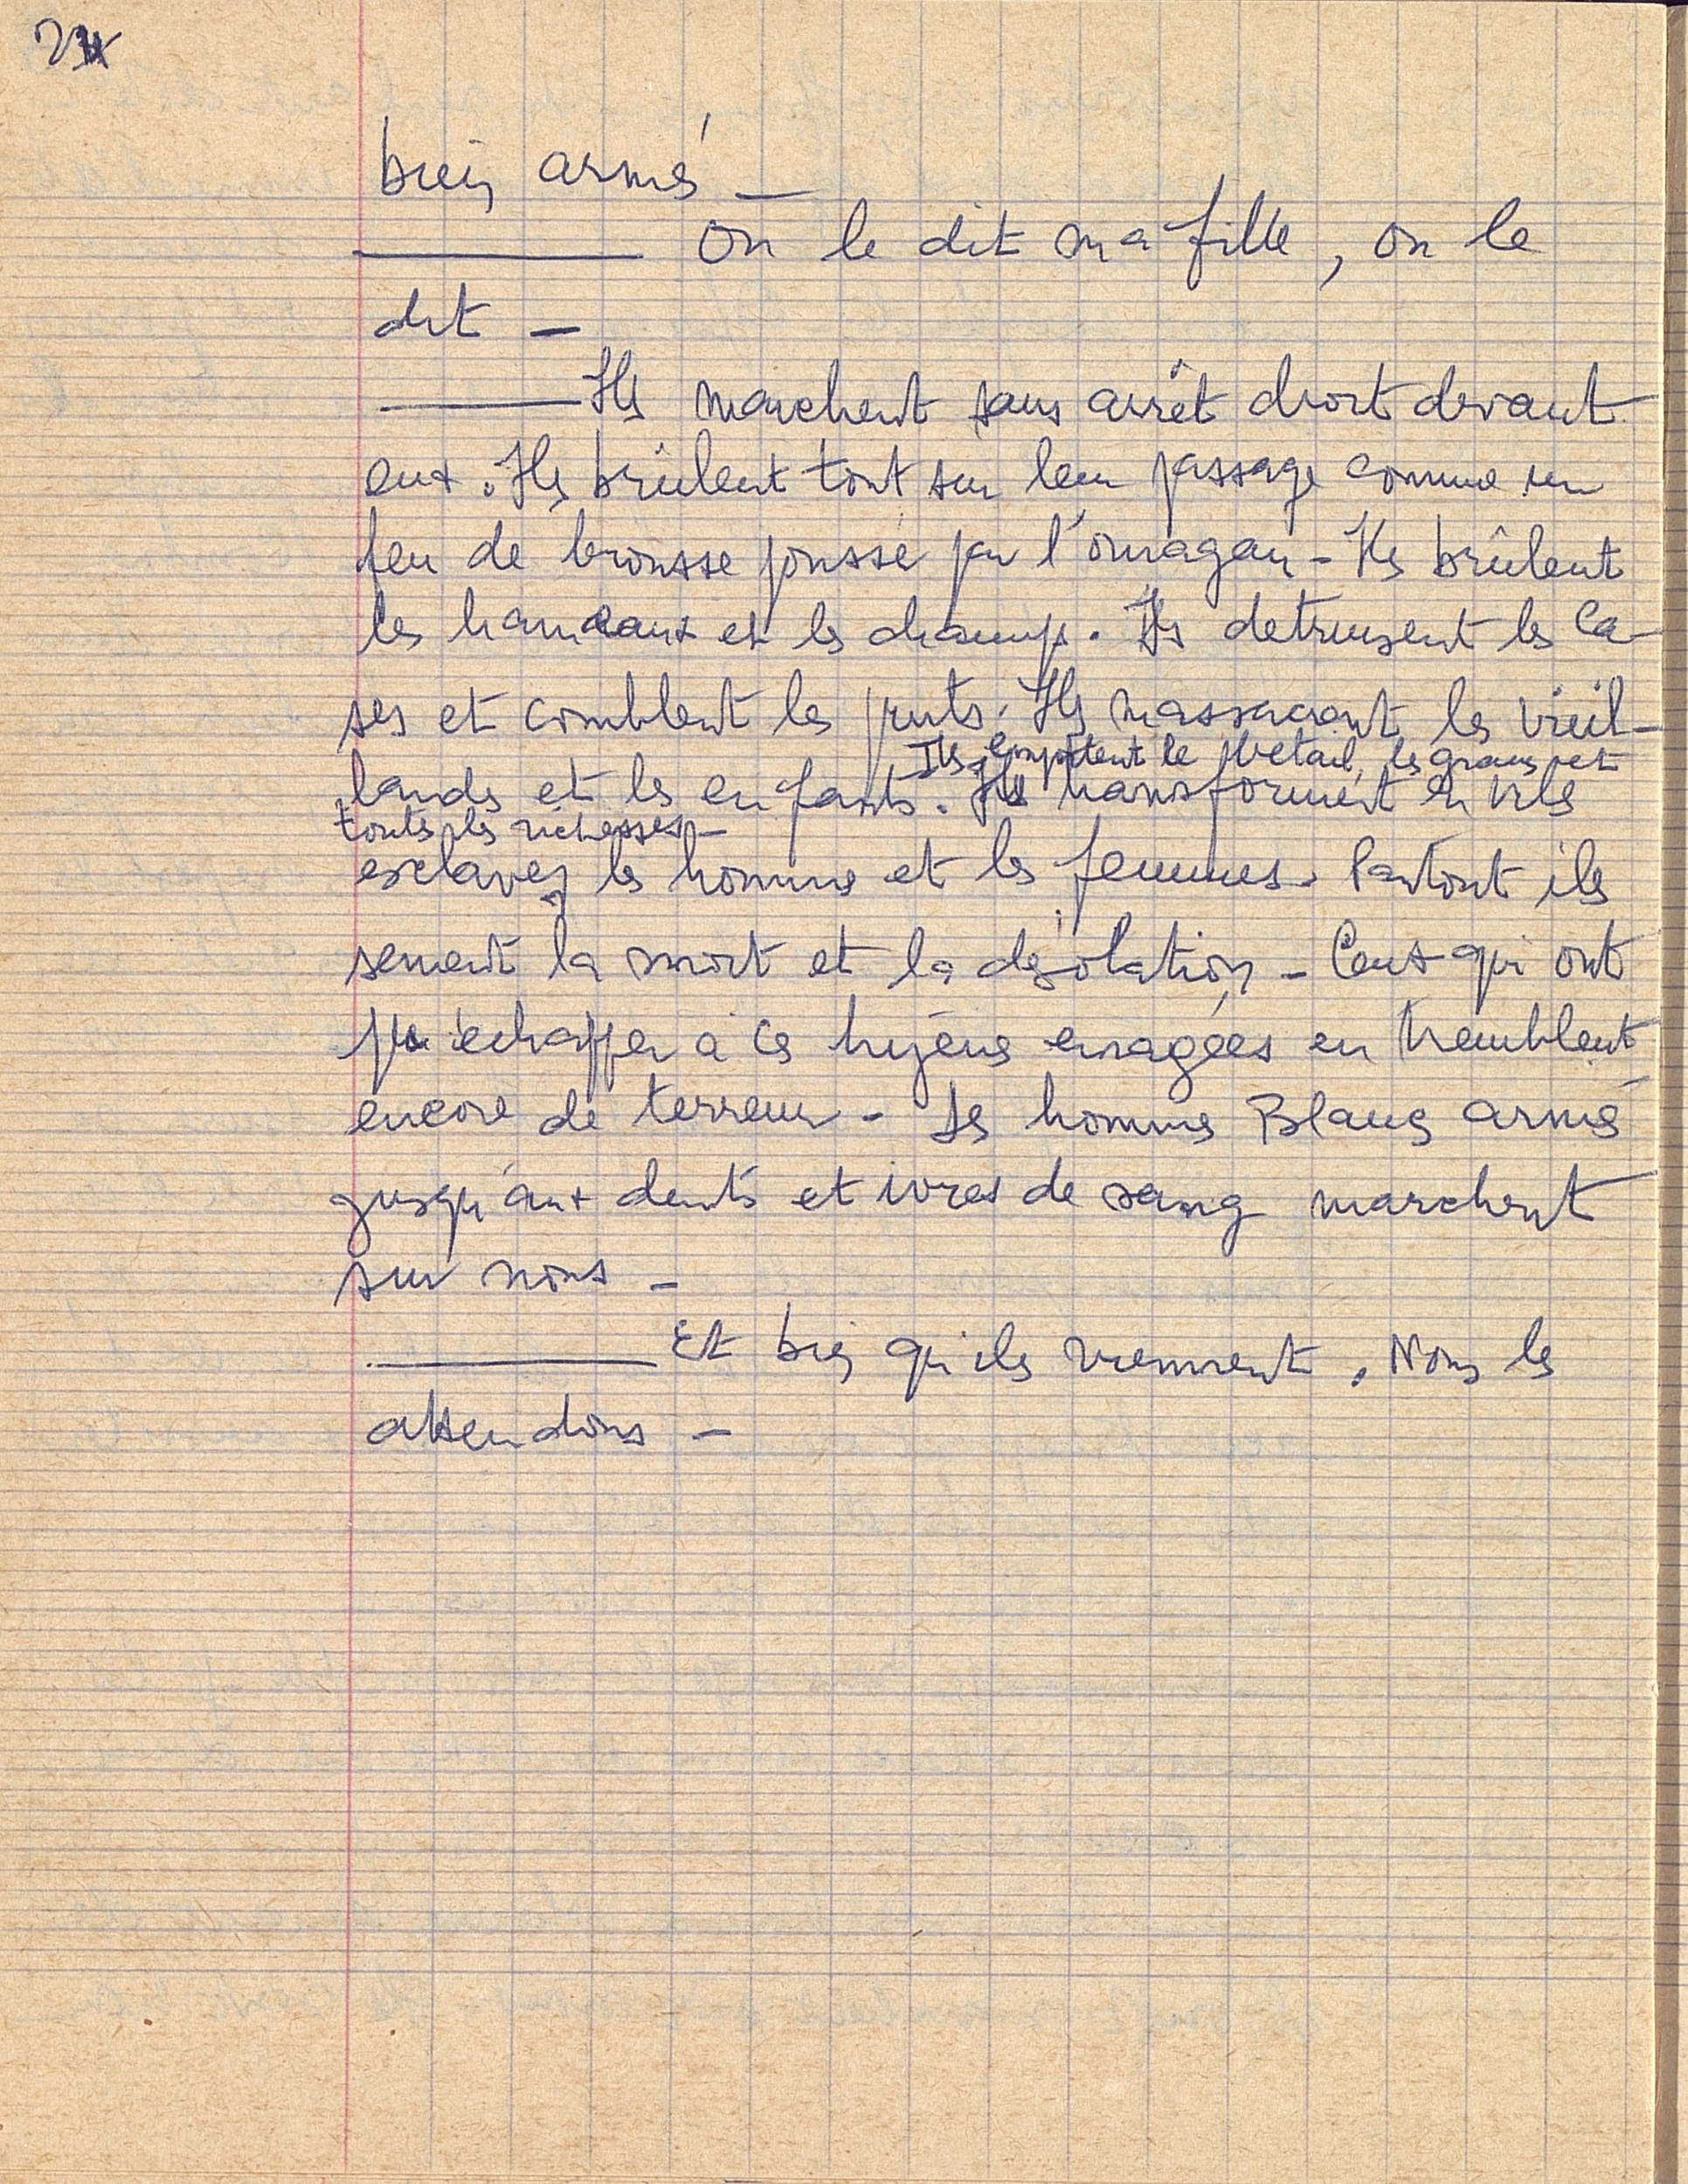 bien armés –
——— On le dit ma fille, on le
dit –
——— Ils marchent sans arrêt droit devant
eux. Ils brûlent tout sur leur passage comme un
feu de brousse poussé par l'ouragan – Ils brûlent
les hameaux et les champs. Ils detruisent les ca-
ses et comblent les puits. Ils massacrent les vieil-
Ils emportent le bétail, les grains et
lards et les enfants. Ils transforment en vils
toutes les richesses –
esclaves les hommes et les femmes. Partout ils
sement la mort et la désolation – Ceux qui ont
pu echapper à ces hyènes enragées en tremblent
encore de terreur – Les hommes Blancs armés
jusqu'aux dents et ivres de sang marchent
sur nous –
——— Et bien qu'ils viennent. Nous les
attendons –